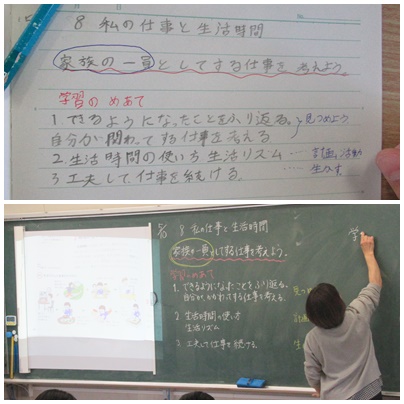 8 私の仕事と生活時間
家族の一員としてする仕事を考えよう。
学習のめあて
1 できるようになったことをふり返る。 見つめよう
自分が関わってする仕事を考える
2 生活時間の使い方 生活リズム … 計画、活動
3 工夫して仕事を続ける。 … 生かす
8 私の仕事と生活時間
家族の一員としてする仕事を考えよう。
学習のめあて
1. できるようになったことをふり返る。 見つ
自分がかかわってする仕事を考える。
2 生活時間の使い方 計画
生活リズム
3 工夫して仕事を続ける。 生
学